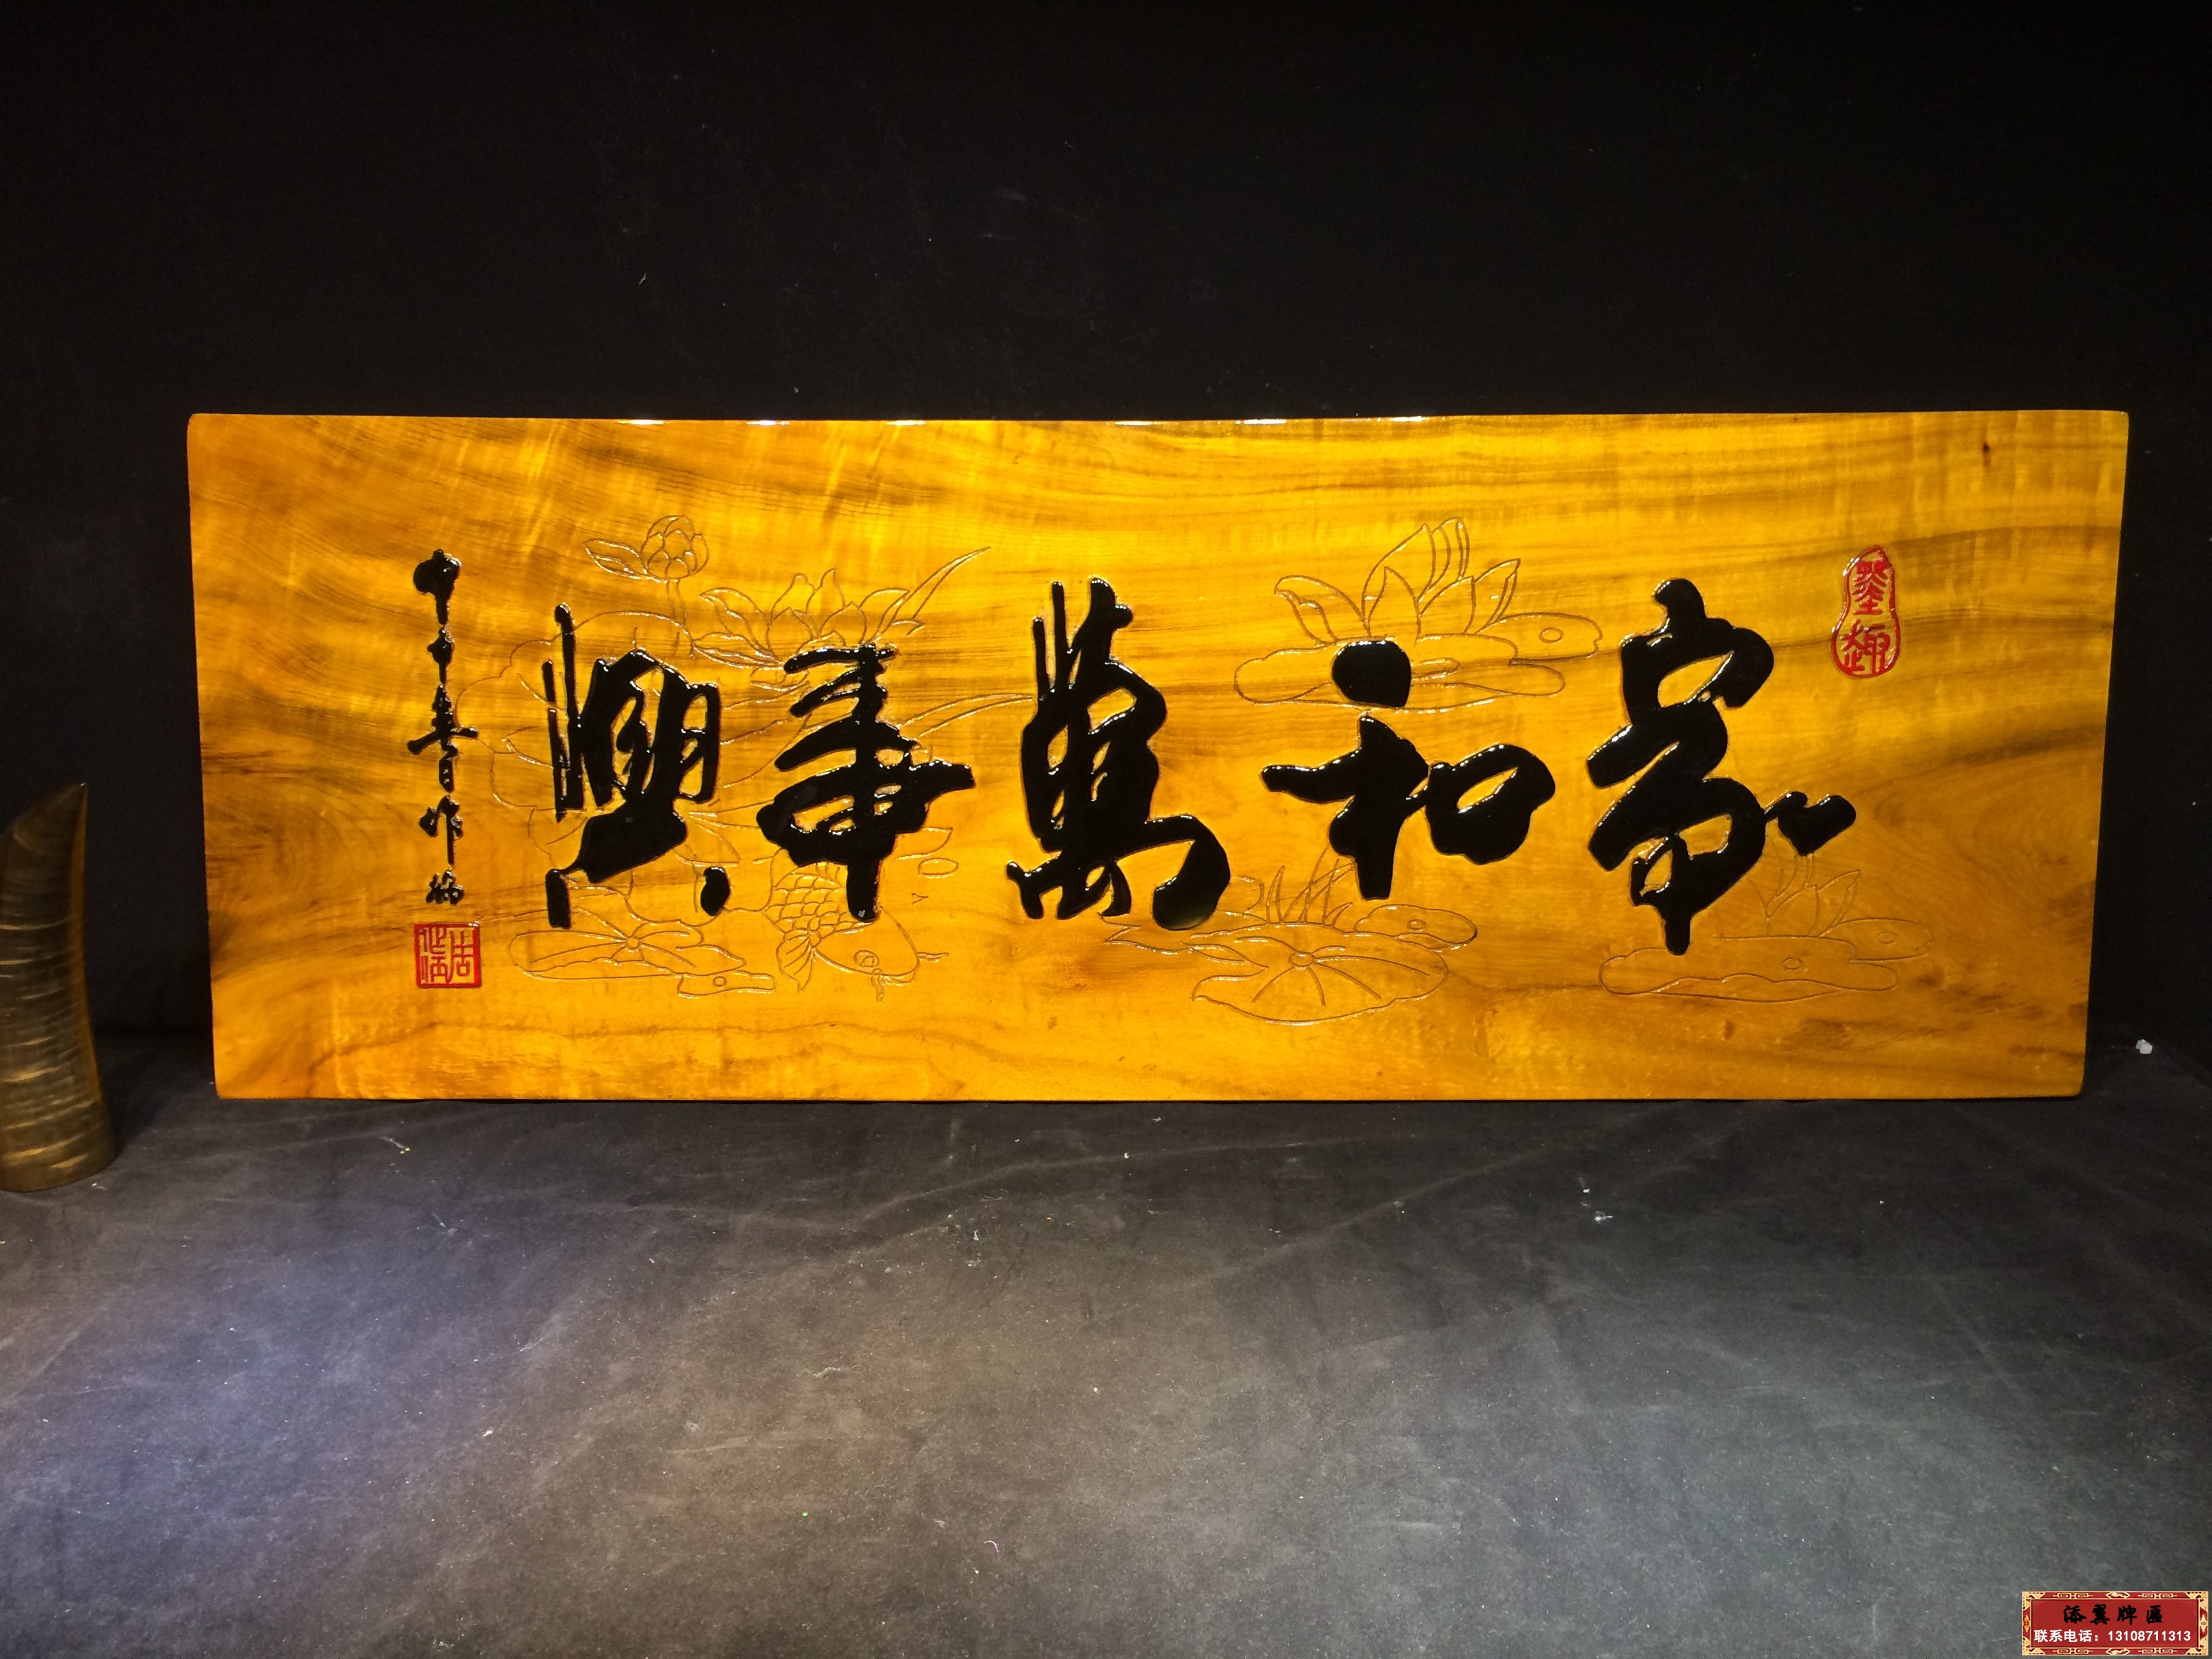 墨趣
家和萬事興
甲申春月作
添翼牌匾
联系电话：13108711313